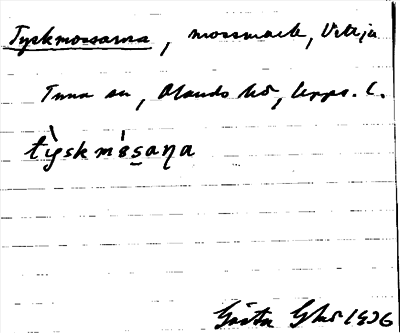 Tyskmossarna, mossmark, Vitsjö
Tuna sn, Olands hd, Upps. l.
tỳskmòs̠aṇa
Gösta Ghd 1936